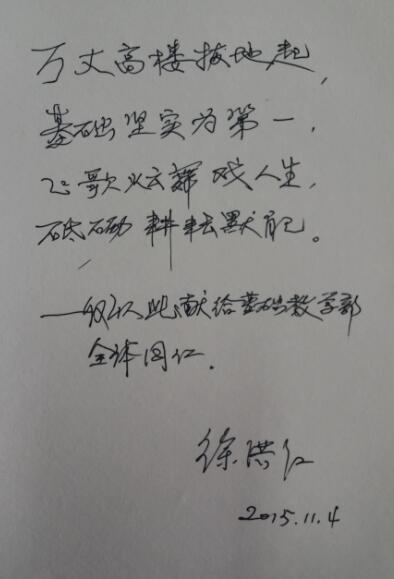 万丈高楼拔地起,
基础坚实为第一,
飞歌炫舞戏人生,
砥砺耕耘默自己。
——仅以此献给基础教学部
全体同仁.
徐洪仁
2015.11.4